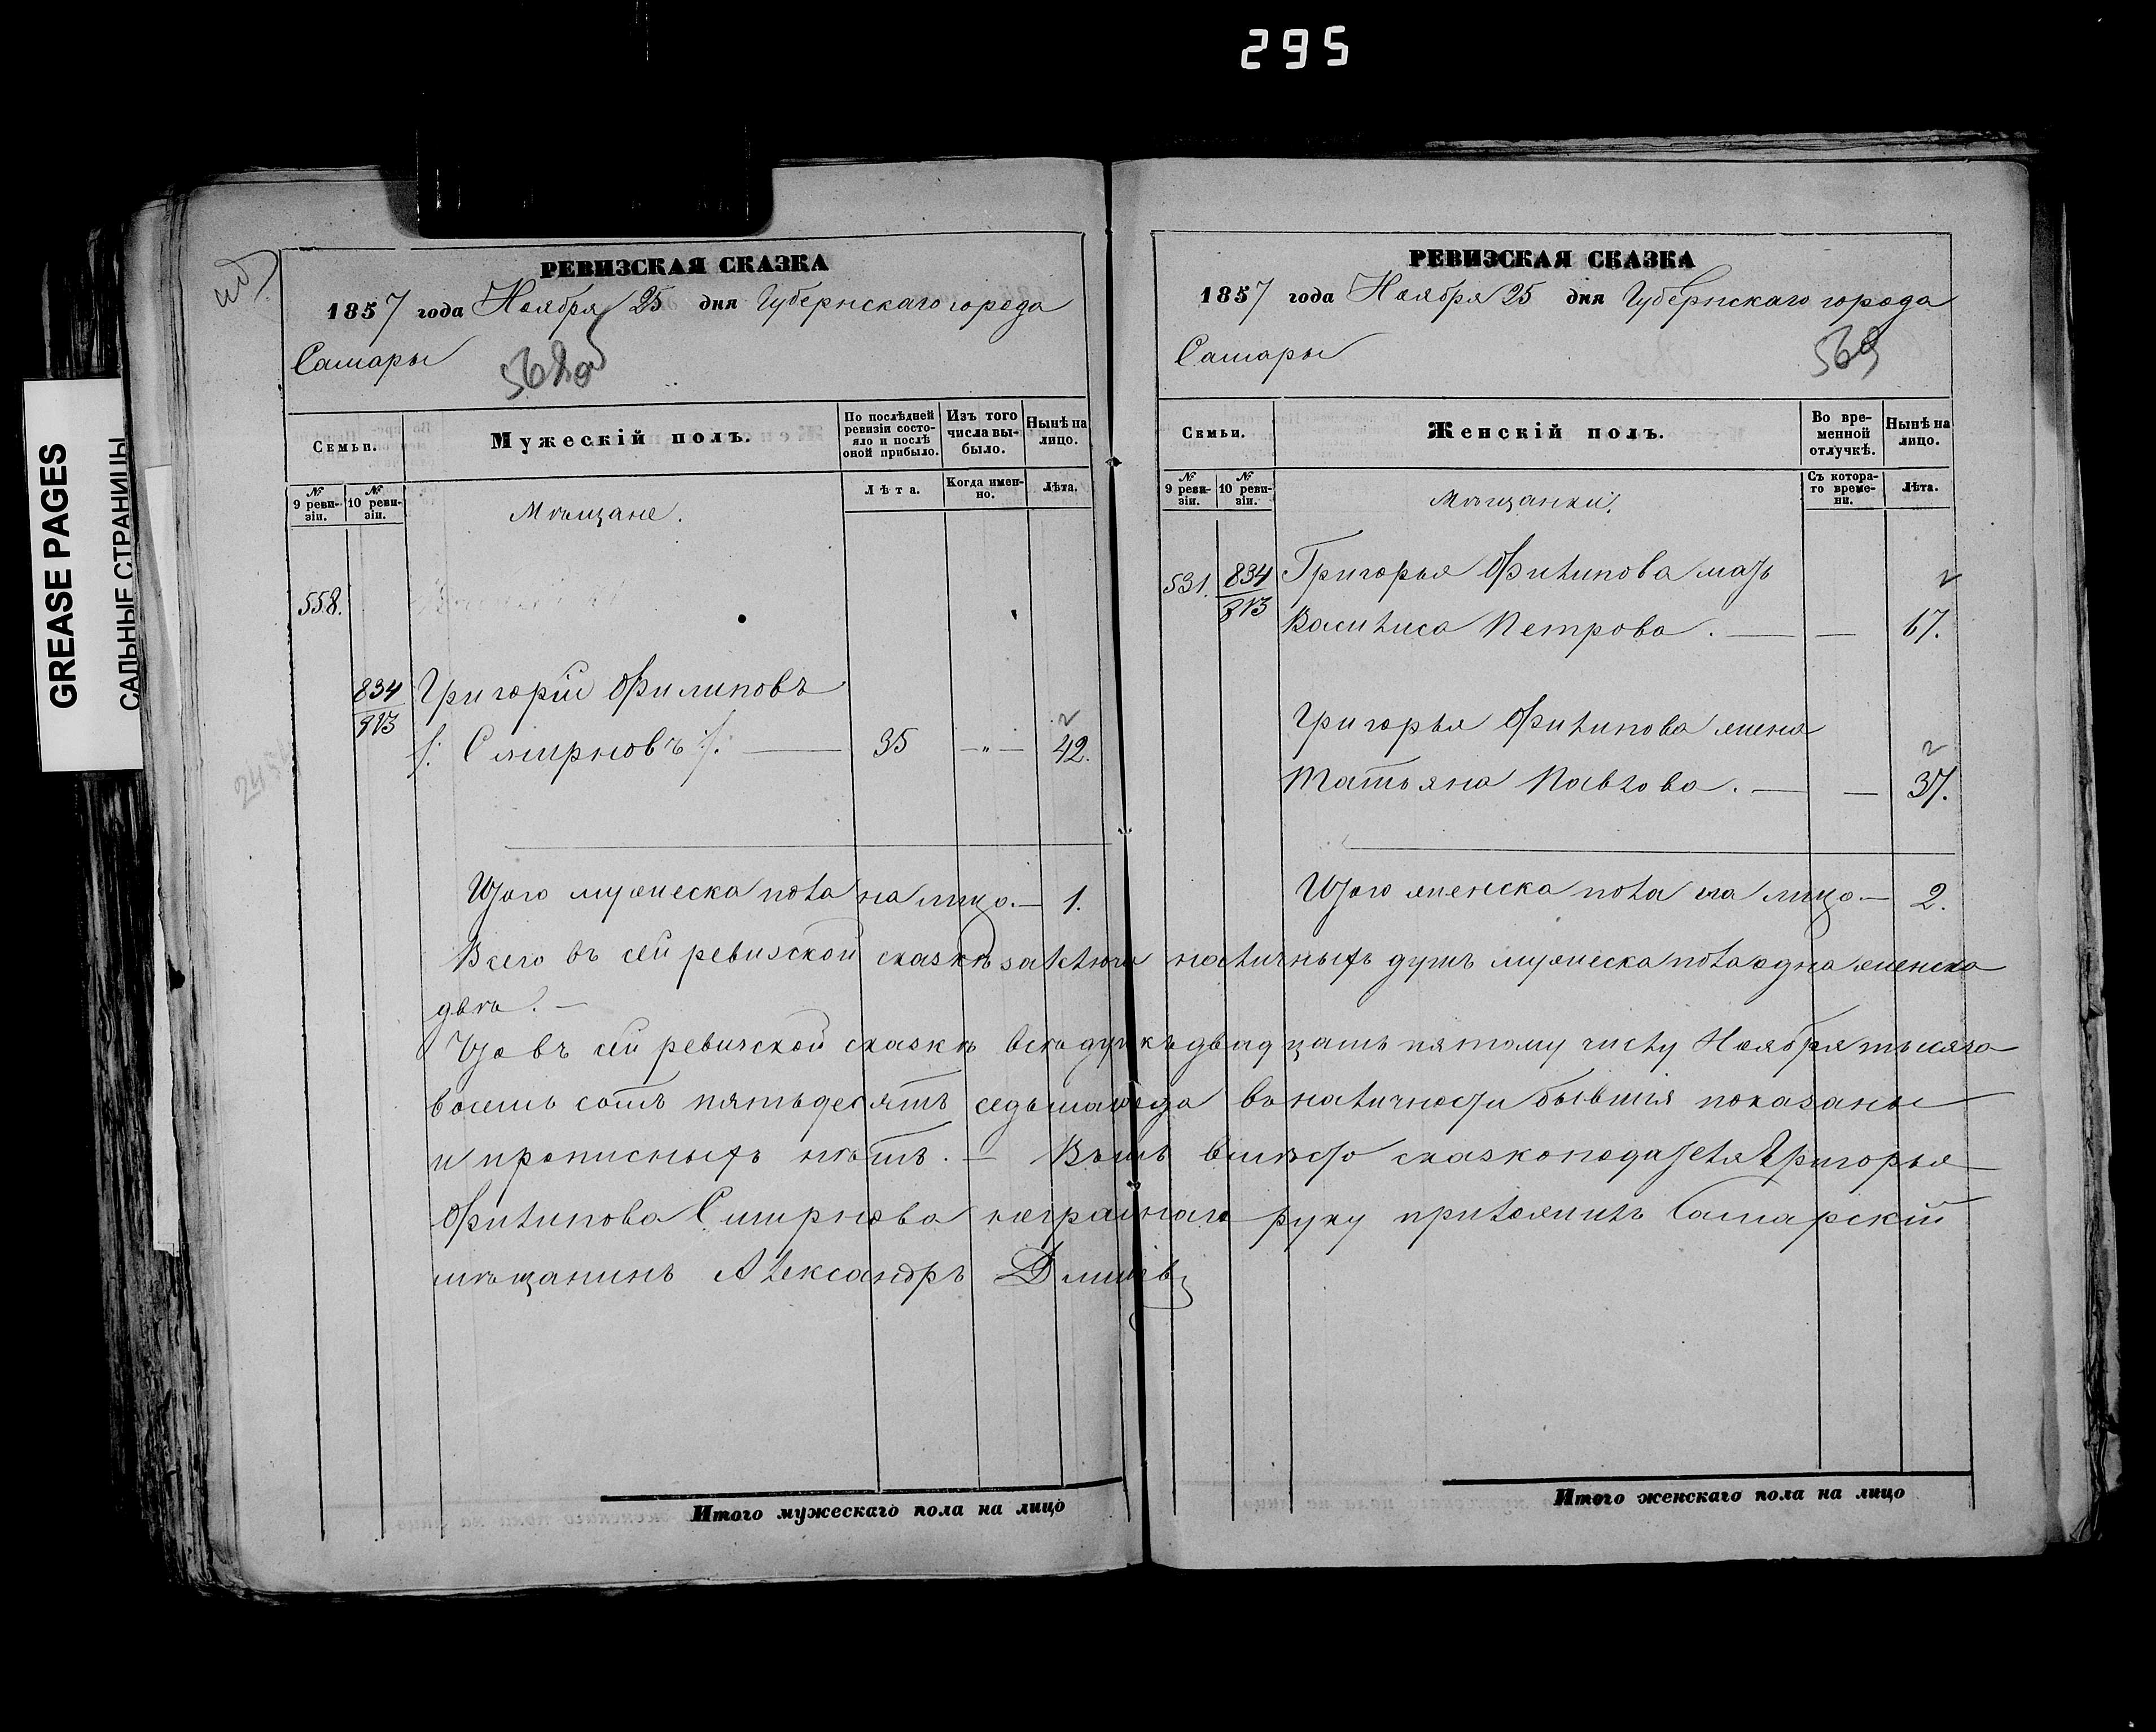 295
GREASE PAGES
САЛЬНЫЕ СТРАНИЦЫ
РЕВИЗСКАЯ СКАЗКА
1857 года Ноября 25 дня Губернскаго города
Самары
568об
Семьи.
Мужескій полъ.
По послѣдней ревизіи состояло и послѣ оной прибыло.
Изъ того числа выбыло.
Нынѣ на лицо.
№ 9 ревизіи.
№ 10 ревизіи.
Лѣта.
Когда именно.
Лѣта.
Мѣщане.
558.
834 Григорій Филиповъ
813 /: Смирновъ :/. — 35 —„— 42.
Итого мужеска пола на лицо. — 1.
РЕВИЗСКАЯ СКАЗКА
1857 года Ноября 25 дня Губернскаго города
Самары
569
Семьи.
Женскій полъ.
Во временной отлучкѣ.
Нынѣ на лицо.
№ 9 ревизіи.
№ 10 ревизіи.
Съ котораго времени.
Лѣта.
Мѣщанки.
531. 834 Григорья Филипова мать
813 Василиса Петрова. — — 67.
Григорья Филипова жена
Татьяна Павлова. — — 37.
Итого женска пола на лицо — 2.
Всего въ сей ревизской сказкѣ заключ наличныхъ душъ мужеска пола одна женска
двѣ. —
Что въ сей ревизской сказкѣ всѣ души къ двадцать пятому числу Ноября тысяча
восемь сотъ пятьдесятъ седьмаго года въ наличности бывшія показаны
и прописныхъ нѣтъ. — Въ томъ вмѣсто сказкоподателя Григорья
Филипова Смирнова неграмотнаго руку приложилъ Самарскій
мѣщанинъ Александръ
Итого мужескаго пола на лицо
Итого женскаго пола на лицо